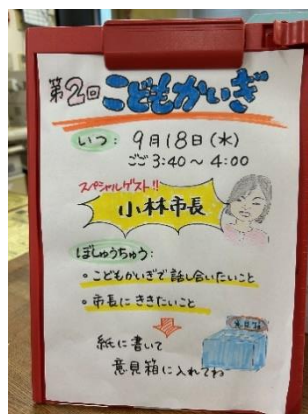 第2回 こどもかいぎ
いつ: 9月18日(水)
ごご3:40～4:00
スペシャルゲスト!!
小林市長
ぼしゅうちゅう:
・こどもかいぎで話し合いたいこと
・市長にききたいこと
紙に書いて
意見箱に入れてね